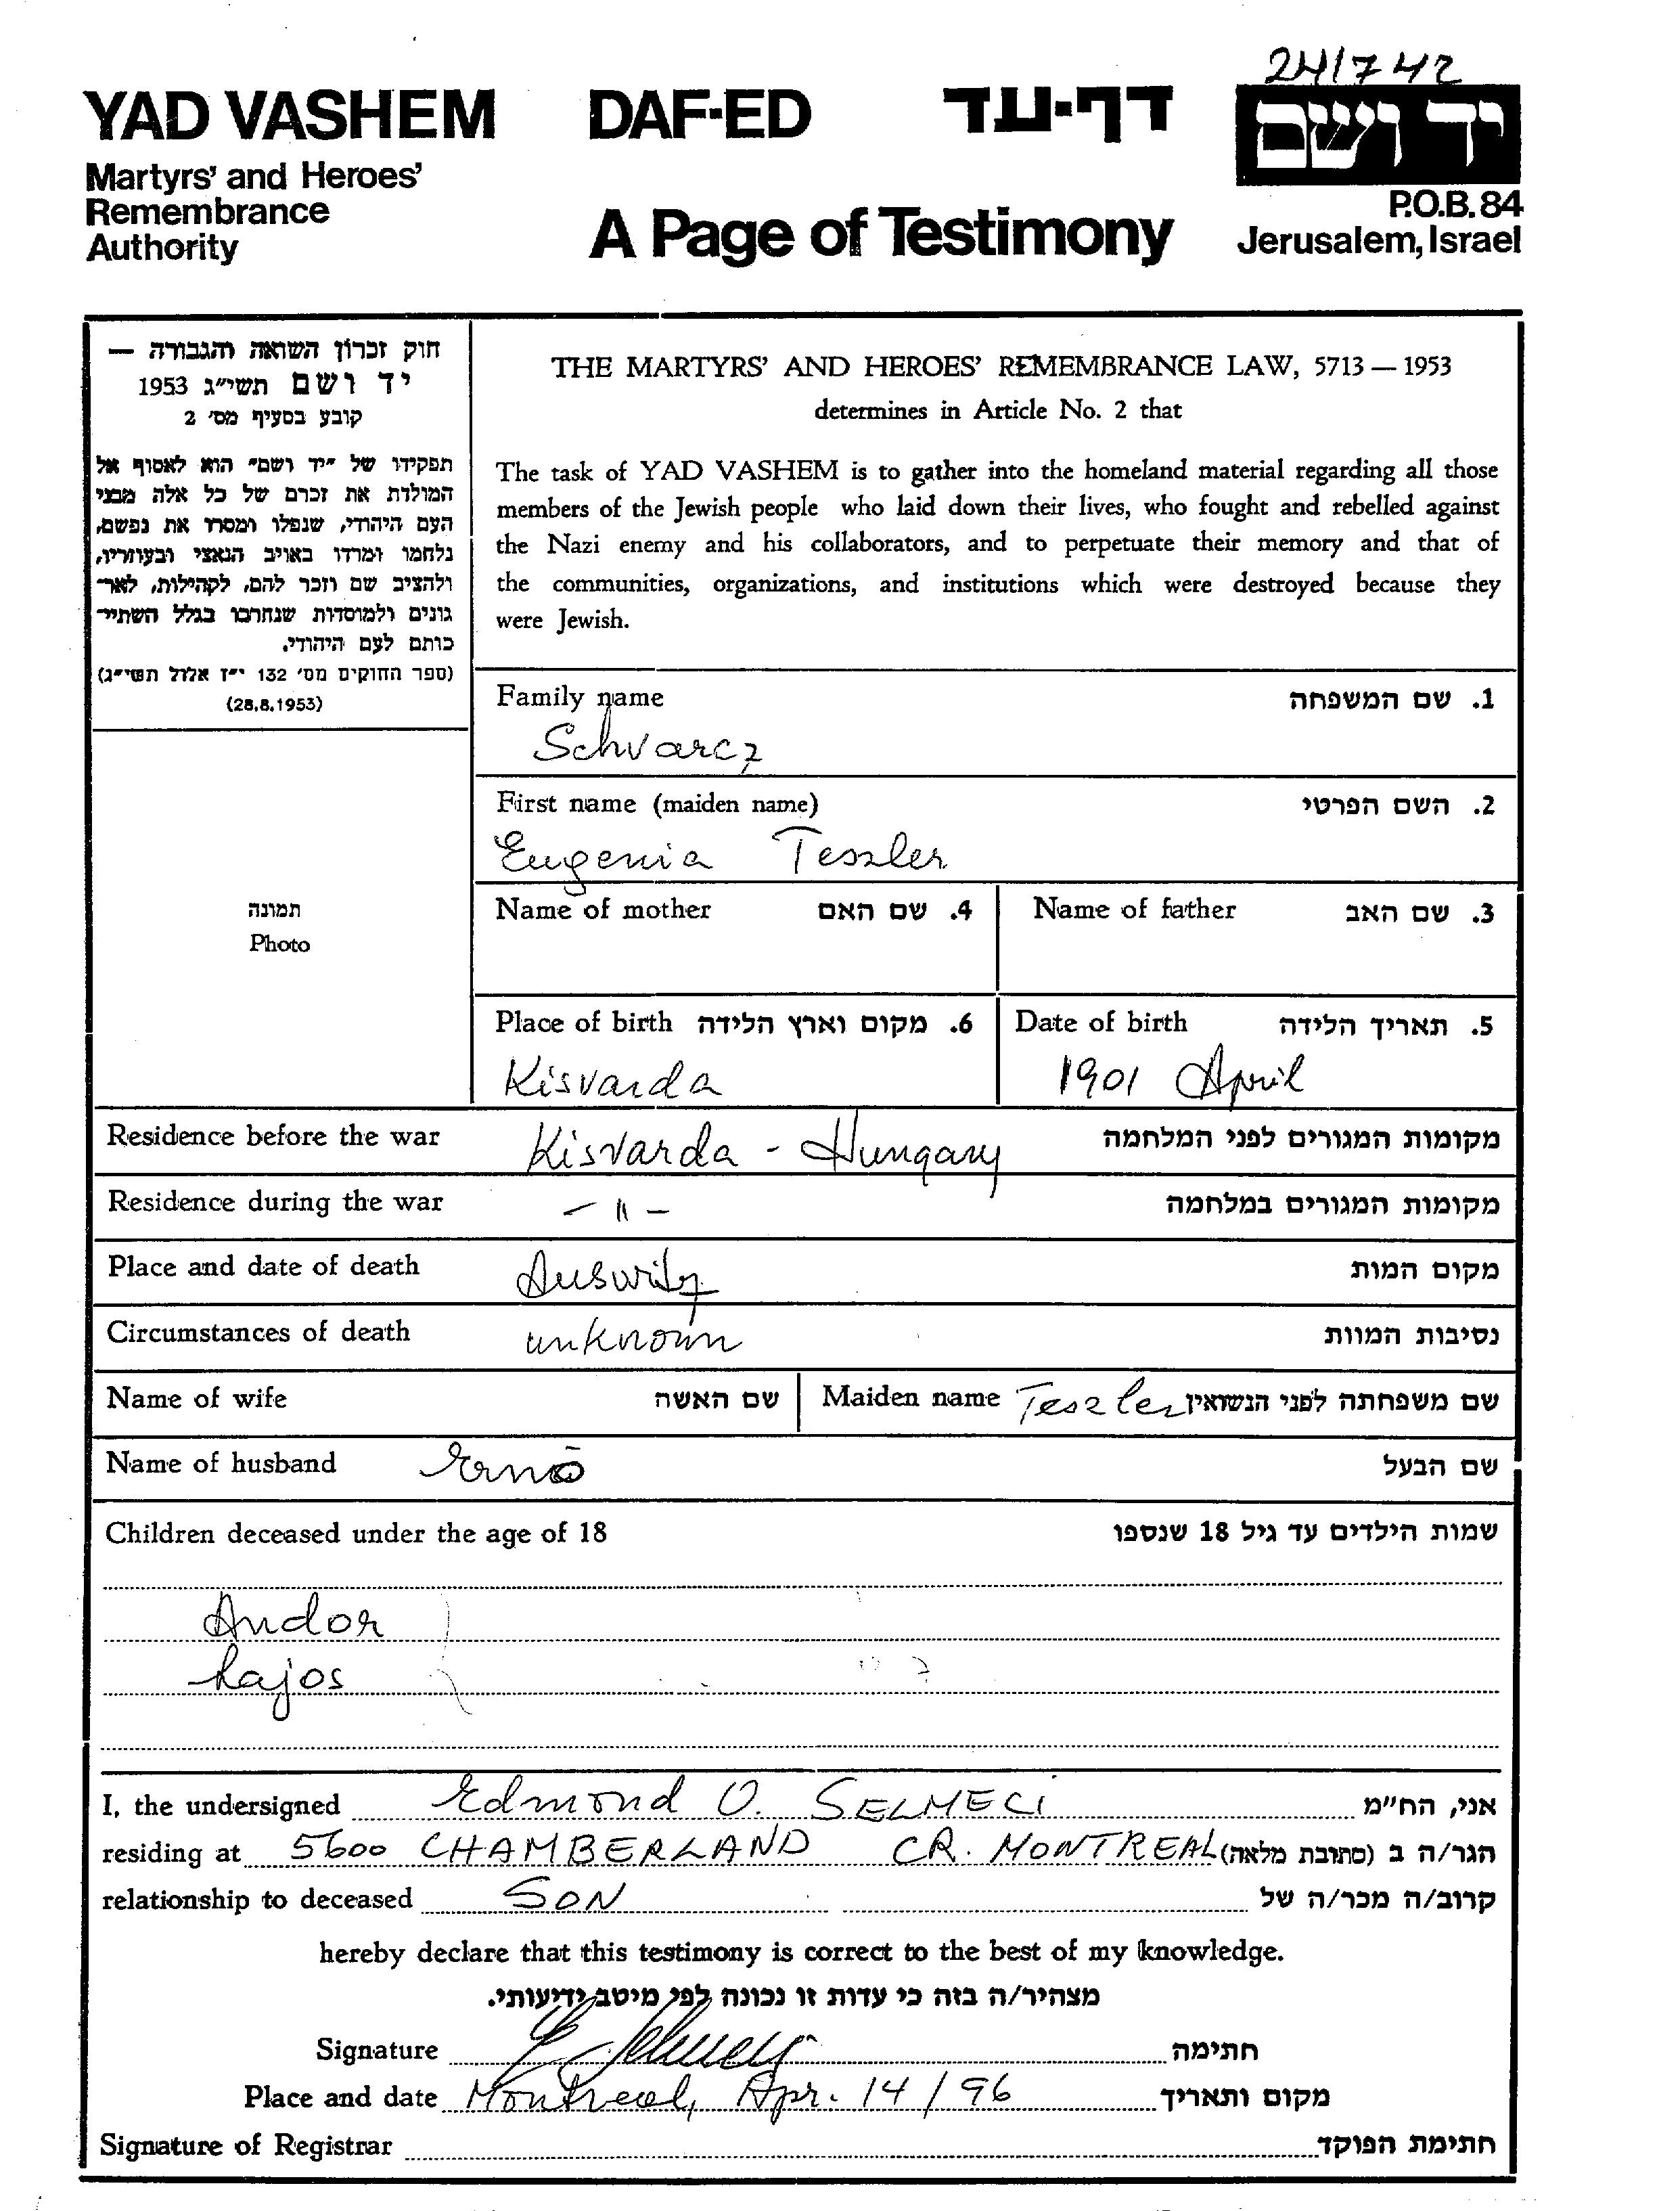 241742
YAD VASHEM DAF-ED דף-עד יד ושם
Martyrs' and Heroes'
Remembrance
Authority
A Page of Testimony
P.O.B. 84
Jerusalem, Israel
חוק זכרון השואה והגבורה —
יד ושם תשי"ג 1953
קובע בסעיף מס' 2
תפקידו של "יד ושם" הוא לאסוף אל
המולדת את זכרם של כל אלה מבני
העם היהודי, שנפלו ומסרו את נפשם,
נלחמו ומרדו באויב הנאצי ובעוזריו,
ולהציב שם וזכר להם, לקהילות, לאר-
גונים ולמוסדות שנחרבו בגלל השתיי-
כותם לעם היהודי.
(ספר החוקים מס' 132 י"ז אלול תשי"ג)
(28.8.1953)
THE MARTYRS' AND HEROES' REMEMBRANCE LAW, 5713 — 1953
determines in Article No. 2 that
The task of YAD VASHEM is to gather into the homeland material regarding all those
members of the Jewish people who laid down their lives, who fought and rebelled against
the Nazi enemy and his collaborators, and to perpetuate their memory and that of
the communities, organizations, and institutions which were destroyed because they
were Jewish.
תמונה
Photo
Family name 1. שם המשפחה
Schvarcz
First name (maiden name) 2. השם הפרטי
Eugenia Teszler
Name of mother 4. שם האם Name of father 3. שם האב
Place of birth 6. מקום וארץ הלידה Date of birth 5. תאריך הלידה
Kisvarda 1901 April
Residence before the war Kisvarda - Hungary מקומות המגורים לפני המלחמה
Residence during the war — " — מקומות המגורים במלחמה
Place and date of death Auswitz מקום המות
Circumstances of death unknown נסיבות המוות
Name of wife שם האשה Maiden name Teszler שם משפחתה לפני הנשואין
Name of husband Ernő שם הבעל
Children deceased under the age of 18 שמות הילדים עד גיל 18 שנספו
Andor
Lajos
I, the undersigned Edmond O. SELMECI אני, הח"מ
residing at 5600 CHAMBERLAND CR. MONTREAL הגר/ה ב (כתובת מלאה)
relationship to deceased SON קרוב/ה מכר/ה של
hereby declare that this testimony is correct to the best of my knowledge.
מצהיר/ה בזה כי עדות זו נכונה לפי מיטב ידיעותי.
Signature E. Selmeci חתימה
Place and date Montreal, Apr. 14/96 מקום ותאריך
Signature of Registrar חתימת הפוקד